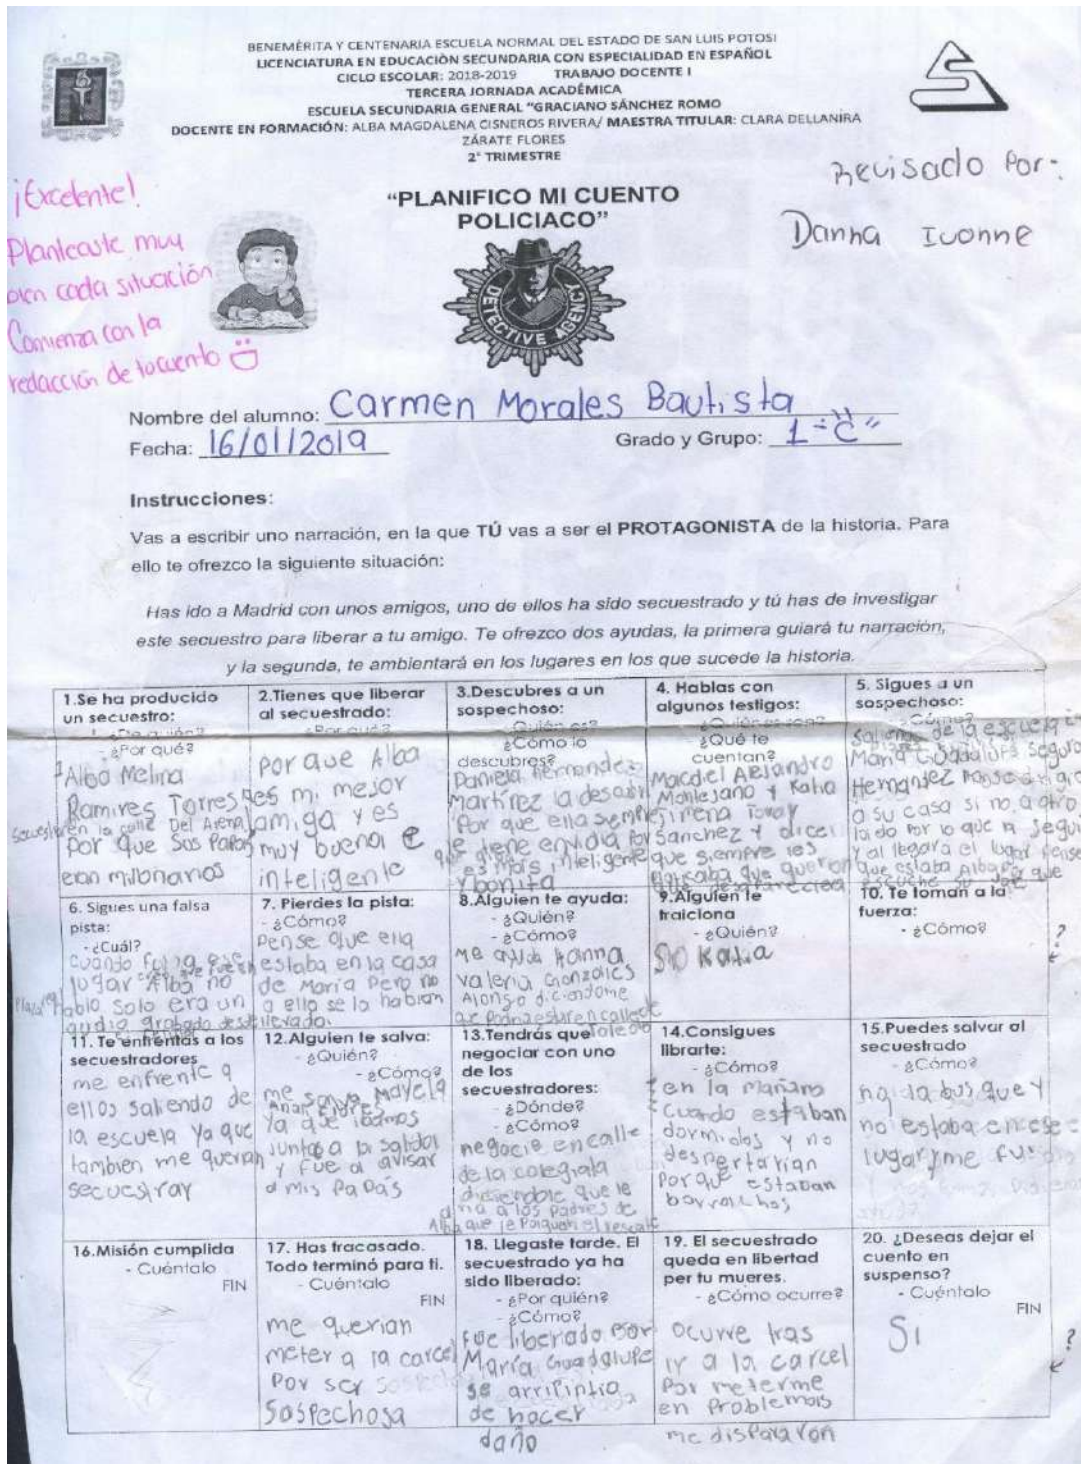 BENEMÉRITA Y CENTENARIA ESCUELA NORMAL DEL ESTADO DE SAN LUIS POTOSI
LICENCIATURA EN EDUCACIÓN SECUNDARIA CON ESPECIALIDAD EN ESPAÑOL
CICLO ESCOLAR: 2018-2019 TRABAJO DOCENTE I
TERCERA JORNADA ACADÉMICA
ESCUELA SECUNDARIA GENERAL "GRACIANO SÁNCHEZ ROMO
DOCENTE EN FORMACIÓN: ALBA MAGDALENA CISNEROS RIVERA/ MAESTRA TITULAR: CLARA DELLANIRA
ZÁRATE FLORES
2° TRIMESTRE
Revisado Por:
Danna Ivonne
¡Excelente!
Planteaste muy
bien cada situación
Comienza con la
redacción de tu cuento
"PLANIFICO MI CUENTO
POLICIACO"
DETECTIVE AGENCY
Nombre del alumno: Carmen Morales Bautista
Fecha: 16/01/2019 Grado y Grupo: 1-"C"
Instrucciones:
Vas a escribir uno narración, en la que TÚ vas a ser el PROTAGONISTA de la historia. Para
ello te ofrezco la siguiente situación:
Has ido a Madrid con unos amigos, uno de ellos ha sido secuestrado y tú has de investigar
este secuestro para liberar a tu amigo. Te ofrezco dos ayudas, la primera guiará tu narración,
y la segunda, te ambientará en los lugares en los que sucede la historia.
1.Se ha producido
un secuestro:
- ¿Por qué?
Alba Melina
Ramires Torres
en la calle Del Arenal
Por que Sus Papas
eran millonarios
2.Tienes que liberar
al secuestrado:
Por que Alba
es mi mejor
amiga y es
muy buena e
inteligente
3.Descubres a un
sospechoso:
¿Cómo lo
descubres?
Daniela Hernandez
Martínez la
Por que ella siempre
le tiene envidia por
es más inteligente
y bonita
4. Hablas con
algunos testigos:
¿Qué te
cuentan?
Macdiel Alejandro
Montejano y Katia
Jimena
Sanchez y dicen
que siempre les
que querian
que desapareciera
5. Sigues a un
sospechoso:
- ¿Cómo?
Saliendo de la escuela
María Guadalupe Segura
Hernandez
a su casa si no a otro
lado por lo que la segui
y al llegar a el lugar pense
que estaba Alba por que
6. Sigues una falsa
pista:
- ¿Cuál?
cuando fui a ese
lugar Alba no
hablo solo era un
audio grabado
7. Pierdes la pista:
- ¿Cómo?
Pense que ella
estaba en la casa
de María Pero no
a ella se la habian
llevado.
8.Alguien te ayuda:
- ¿Quién?
- ¿Cómo?
Me ayuda Hanna
Valeria Gonzáles
Alonso diciendome
que Podria estar en calle de
Toledo
9.Alguien te
traiciona
- ¿Quién?
Si Katia
10. Te toman a la
fuerza:
- ¿Cómo?
?
11. Te enfrentas a los
secuestradores
me enfrente a
ellos saliendo de
la escuela ya que
tambien me querian
secuestrar
12.Alguien te salva:
- ¿Quién?
- ¿Cómo?
me salva Mayela
ya que ibamos
juntas a la salida
y fue a avisar
a mis Papás
13.Tendrás que
negociar con uno
de los
secuestradores:
- ¿Dónde?
- ¿Cómo?
negocie en calle
de la colegiata
diciendole que le
diria a los padres de
Alba que le Paguen el rescate
14.Consigues
librarte:
- ¿Cómo?
en la mañana
cuando estaban
dormidos y no
despertarian
Porque estaban
borrachos
15.Puedes salvar al
secuestrado
- ¿Cómo?
no la busque y
no estaba en ese
lugar y me fui
16.Misión cumplida
- Cuéntalo
FIN
17. Has fracasado.
Todo terminó para ti.
- Cuéntalo
FIN
me querian
meter a la carcel
Por ser
Sospechosa
18. Llegaste tarde. El
secuestrado ya ha
sido liberado:
- ¿Por quién?
- ¿Cómo?
Fue liberado Por
María Guadalupe
se arripintio
de hacer
daño
19. El secuestrado
queda en libertad
per tu mueres.
- ¿Cómo ocurre?
ocurre tras
ir a la carcel
Por meterme
en Problemas
me dispararon
20. ¿Deseas dejar el
cuento en
suspenso?
- Cuéntalo
FIN
Si
?